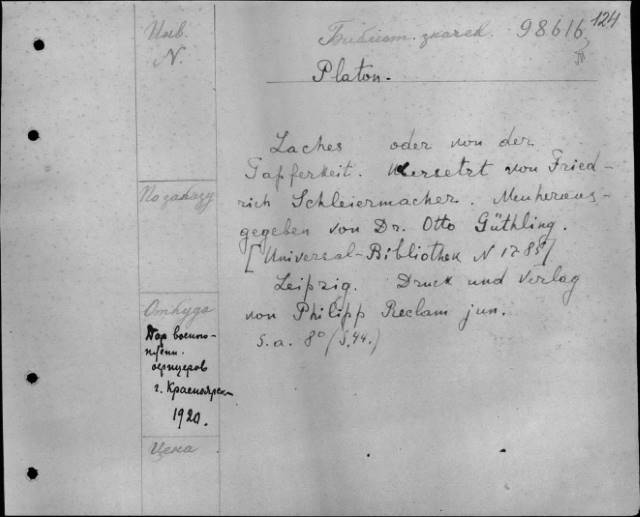 124
Инв. Библиот. значек. 98616
N.
Platon.
Laches oder von der
Tapferkeit. Übersetzt von Fried-
rich Schleiermacher. Neuheraus-
gegeben von Dr. Otto Güthling.
[Universal-Bibliothek N 1785]
Leipzig. Druck und Verlag
von Philipp Reclam jun.
S. a. 8° (S. 44.)
По заказу
Откуда
Дар военно-
пленн.
офицеров
г. Красноярск
1920.
Цена